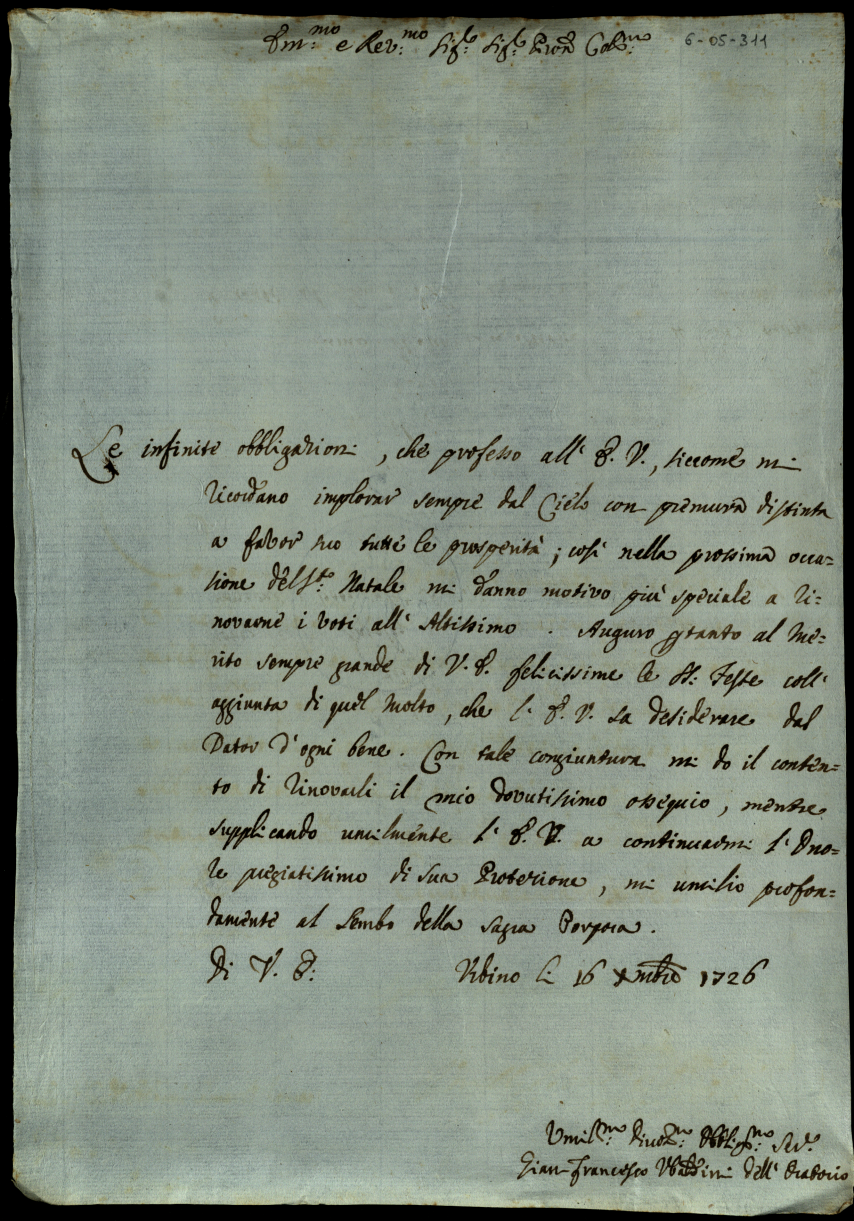 Em:mo e Rev:mo Sig:e Sig:e Pron Col:mo
6-05-311
Le infinite obbligazioni, che professo all' E. V., siccome mi
ricordano implorar sempre dal Cielo con premura distinta
a favor suo tutte le prosperità; così nella prossima occa=
sione del S:to Natale mi danno motivo più speciale a ri=
novarne i voti all' Altissimo. Auguro ptanto al me=
rito sempre grande di V. E. felicissime le SS: Feste coll'
aggiunta di quel molto, che l' E. V. sa desiderare dal
Dator d'ogni bene. Con tale congiuntura mi do il conten=
to di rinovarli il mio dovutissimo ossequio, mentre
supplicando umilmente l' E. V. a continuarmi l' Ono=
re pregiatissimo di sua Protezione, mi umilio profon=
damente al Lembo della sagra Porpora.
Di V. E: Urbino li 16 Xmbre 1726
Umil:mo Divot:mo Obblig:mo Ser:e
Gian Francesco dell' Oratorio